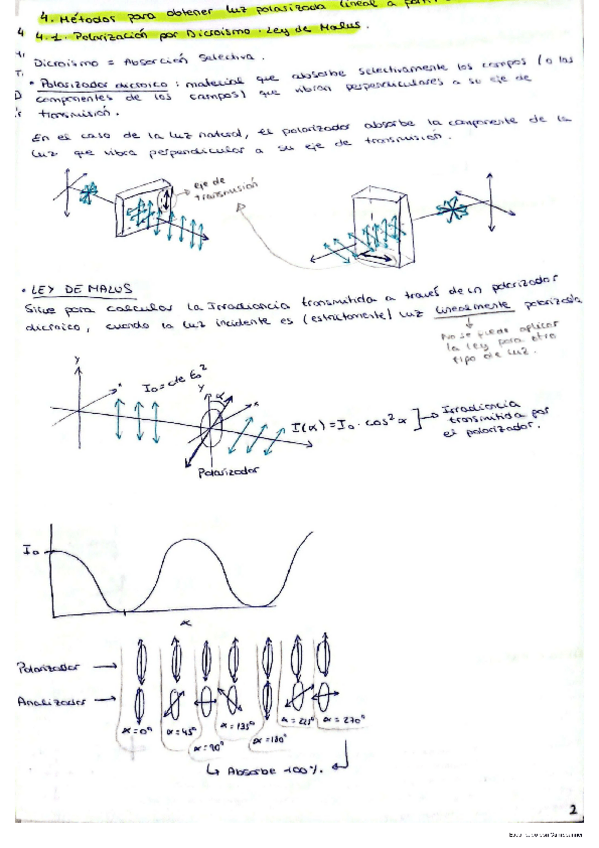 4. Métodos para obtener luz polarizada lineal a
4 4.1. Polarización por Dicroísmo. Ley de Malus.
Dicroísmo = Absorción Selectiva.
• Polarizador dicroico: material que absorbe selectivamente los campos (o las
componentes de los campos) que vibran perpendiculares a su eje de
transmisión.
En el caso de la luz natural, el polarizador absorbe la componente de la
luz que vibra perpendicular a su eje de transmisión.
eje de
transmisión
• LEY DE MALUS
Sirve para calcular la Irradiancia transmitida a través de un polarizador
dicroico, cuando la luz incidente es (estrictamente) luz linealmente polarizada
No se puede aplicar
la ley para otro
tipo de luz.
y
x
I₀ = cte E₀²
y
α
x
I(α) = I₀ · cos² α
Irradiancia
transmitida por
el polarizador.
Polarizador
I₀
α
Polarizador
Analizador
α = 0º
α = 45º
α = 90º
α = 135º
α = 180º
α = 225º
α = 270º
Absorbe 100%.
2